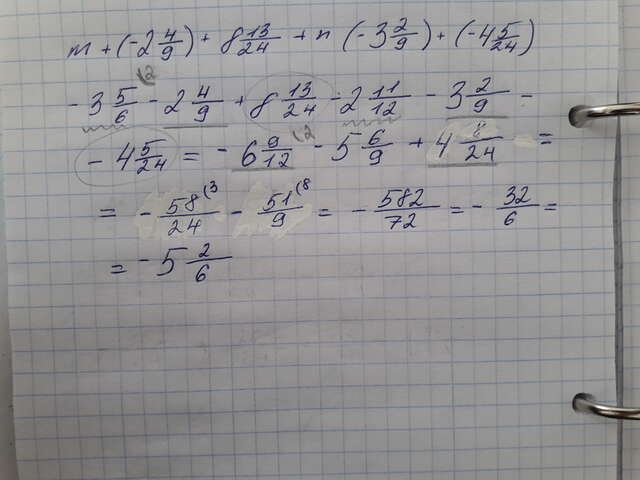 m + (-2 4/9) + 8 13/24 + n (-3 2/9) + (-4 5/24)
- 3 5/6 (2 - 2 4/9 + 8 13/24 - 2 11/12 - 3 2/9 -
- 4 5/24 = - 6 9/12 (2 - 5 6/9 + 4 8/24 =
= - 58/24 (3 - 51/9 (8 = - 582/72 = - 32/6 =
= - 5 2/6